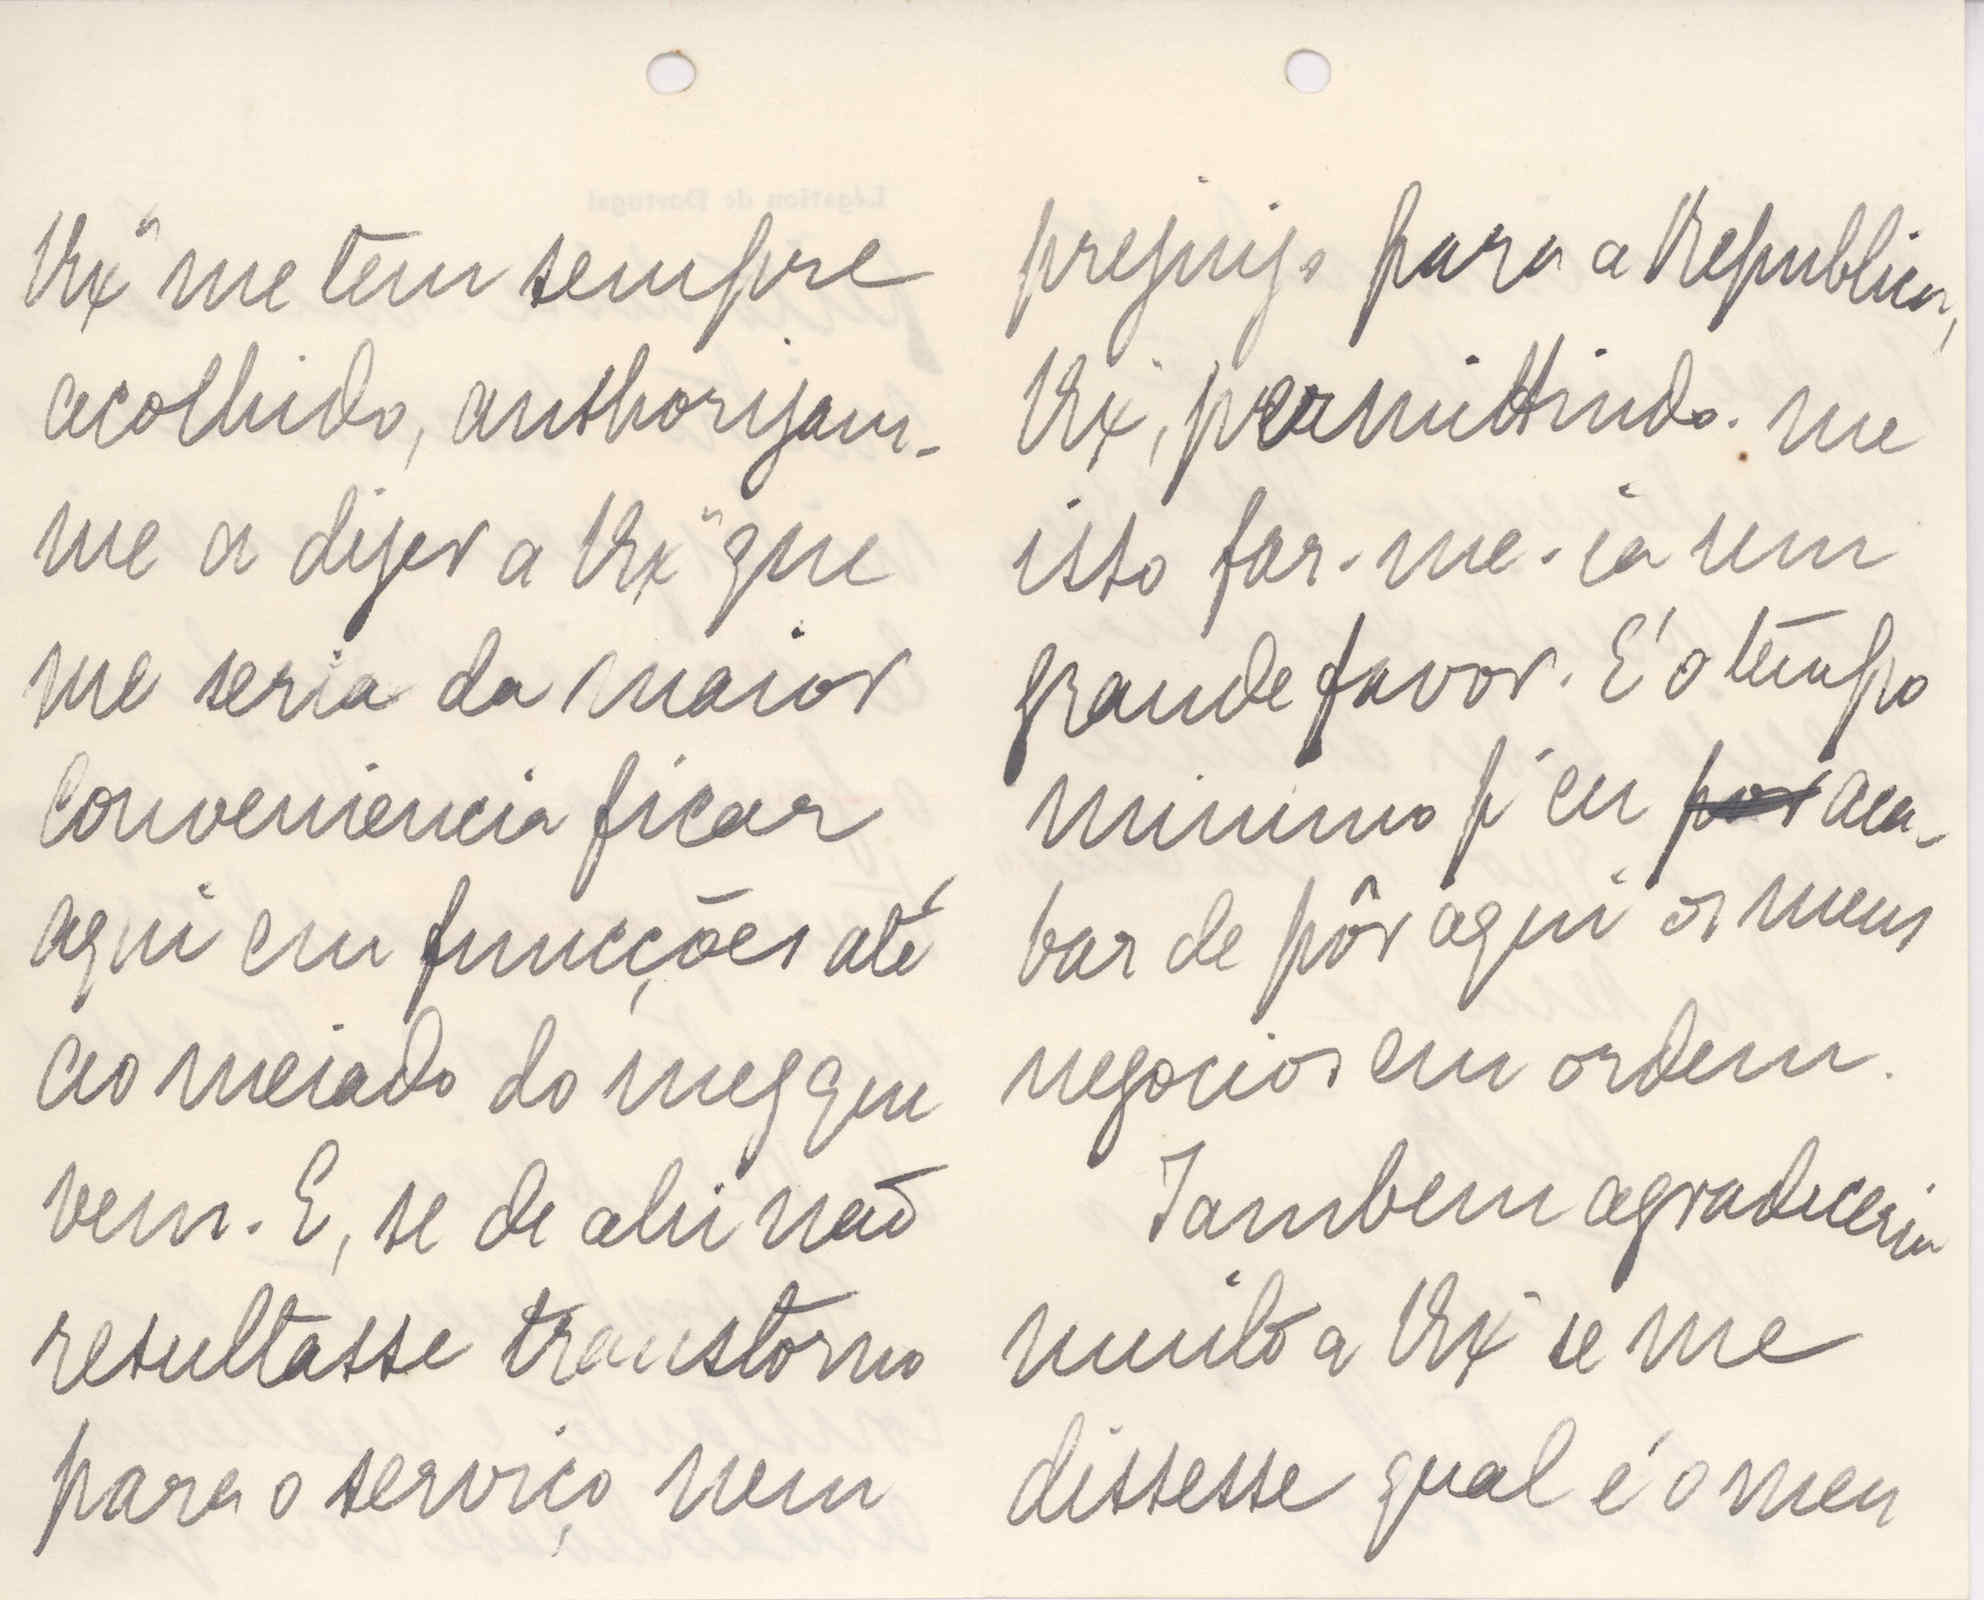 V Ex.ª me tem sempre
acolhido, authorizam-
me a dizer a V Ex.ª que
me seria da maior
conveniencia ficar
aqui em funcções até
ao meiado do mez que
vem. E, se de ahi não
resultasse transtorno
para o serviço nem
prejuizo para a Republica,
V Ex.ª, permittindo-me
isto far-me-ia um
grande favor. E' o tempo
minimo p.ª eu por aca-
bar de pôr aqui os meus
negocios em ordem.
Tambem agradeceria
muito a V Ex.ª se me
dissesse qual é o meu